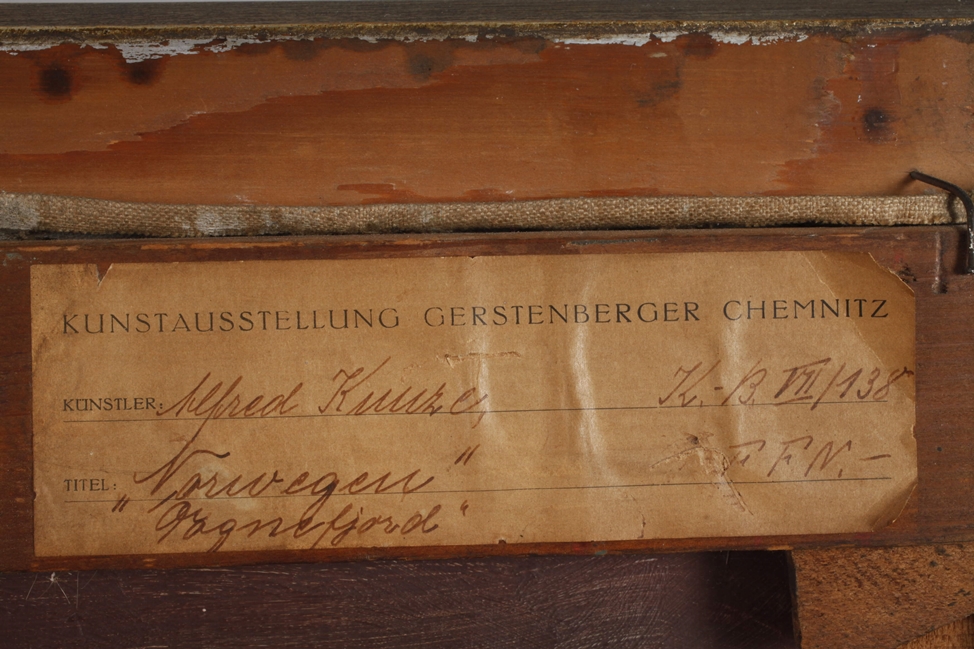 KUNSTAUSSTELLUNG GERSTENBERGER CHEMNITZ
KÜNSTLER: Alfred Kunze, K.-B. VII/138
TITEL: "Norwegen" F F N.—
"Sognefjord"